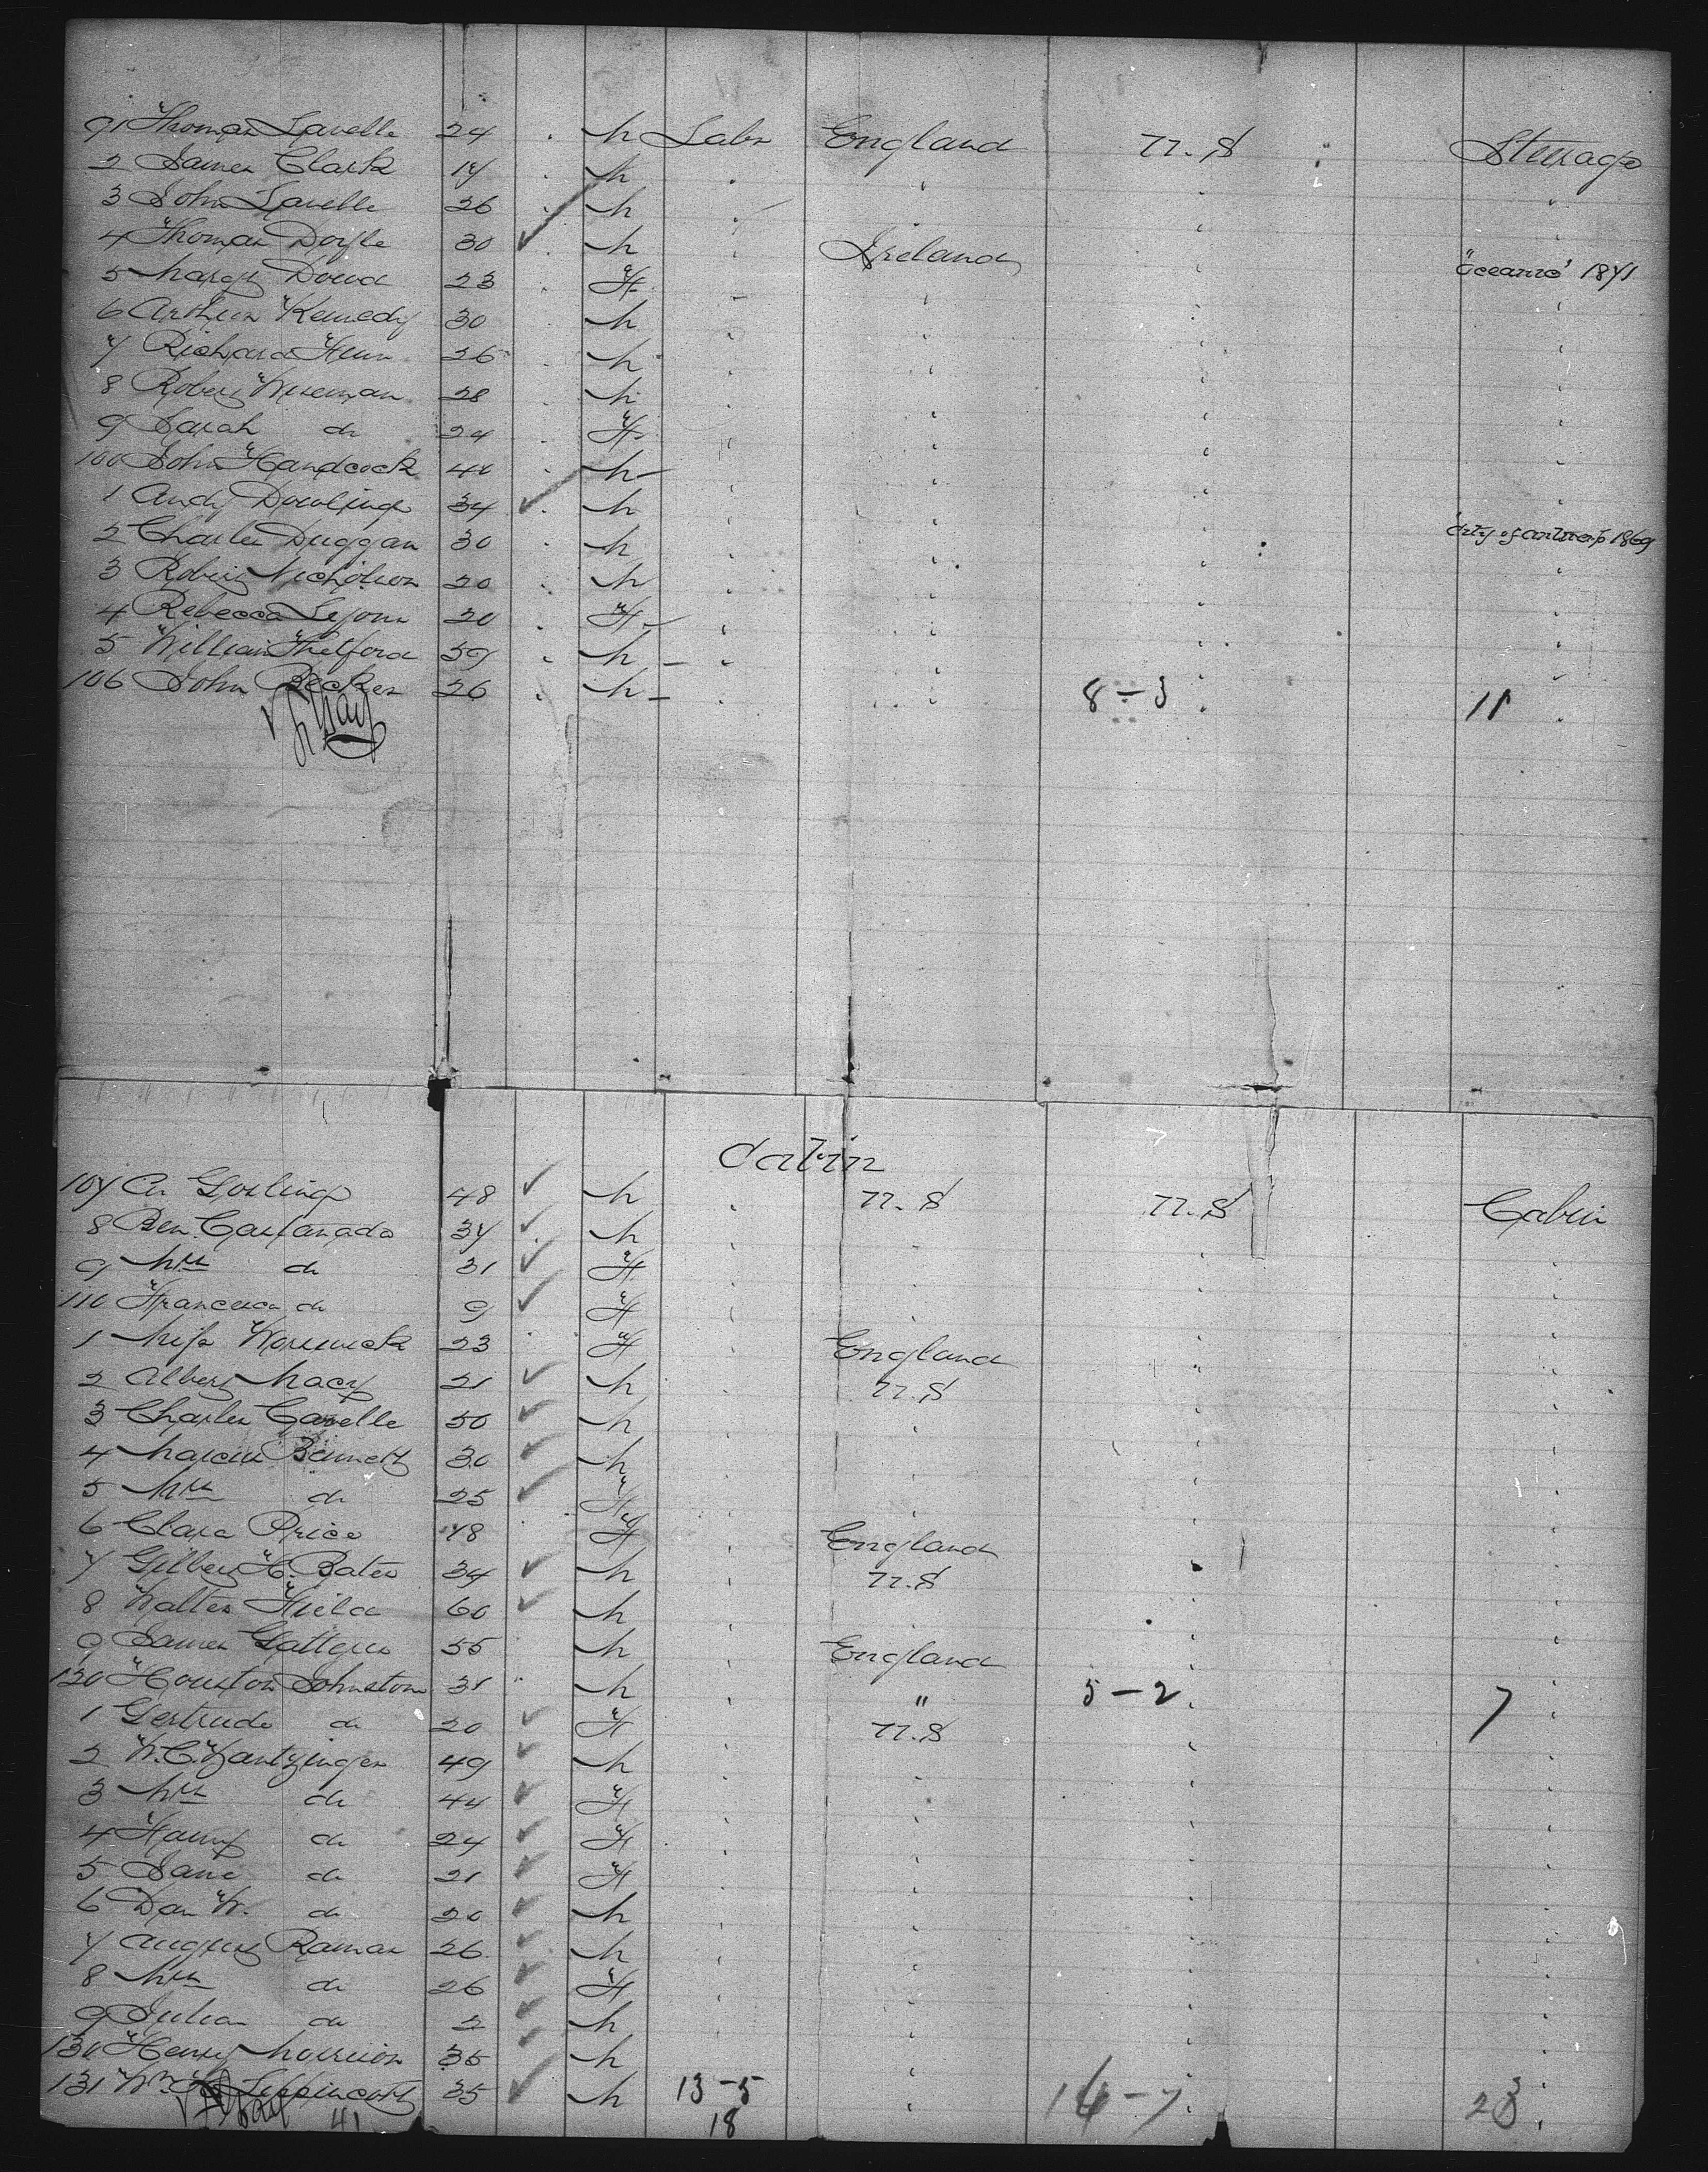 91 Thomas Lavelle 24 " M Labr England U.S Steerage
2 James Clark 17 " M " " " "
3 John Lavelle 26 " M " " " "
4 Thomas Doyle 30 ✓ M " Ireland " "Oceanic" 1871
5 Margt Doud 23 " F " " " "
6 Arthur Kennedy 30 " M " " " "
7 Richard 26 " M " " " "
8 Robert Wiseman 28 " M " " " "
9 Sarah do 24 " F " " " "
100 John Handcock 40 " M " " " "
1 Andy Dowling 34 ✓ M " " " "City of Antwerp 1869
2 Charles Duggan 30 " M " " " "
3 Robert Nicholson 20 " M " " " "
4 Rebecca 20 " F " " " "
5 William Thelford 59 " M " " " "
106 John Becker 26 " M " " 8-3 " 11 "
Cabin
107 Gosling 48 ✓ M " U.S U.S Cabin
8 Ben Castanado 37 ✓ M " " " "
9 Mrs do 31 ✓ F " " " "
110 Francesca do 9 ✓ F " " " "
1 Miss 23 " F " England " "
2 Albert Macy 21 ✓ M " U.S " "
3 Charles 50 ✓ M " " " "
4 Bennett 30 ✓ M " " " "
5 Mrs do 25 ✓ F " " " "
6 Clara Price 18 " F " England " "
7 Gilbert H. Bates 34 ✓ M " U.S " "
8 Walter Field 60 ✓ M " " " "
9 James 55 M " England " "
120 Houston Johnston 31 " M " " 5-2 " 7 "
1 Gertrude do 20 ✓ F " U.S " "
2 W.C. Wantzinger 49 ✓ M " " " "
3 Mrs do 44 ✓ F " " " "
4 Fanny do 24 ✓ F " " " "
5 Jane do 21 ✓ F " " " "
6 Dan W. do 20 ✓ M " " " "
7 August 26 ✓ M " " " "
8 Mrs do 26 ✓ F " " " "
9 Julian do 2 ✓ M " " " "
130 Henry Morrison 35 ✓ M " " " "
131 Wm Lippincott 35 ✓ M 13-5 " 16-7 " 23 "
41 18